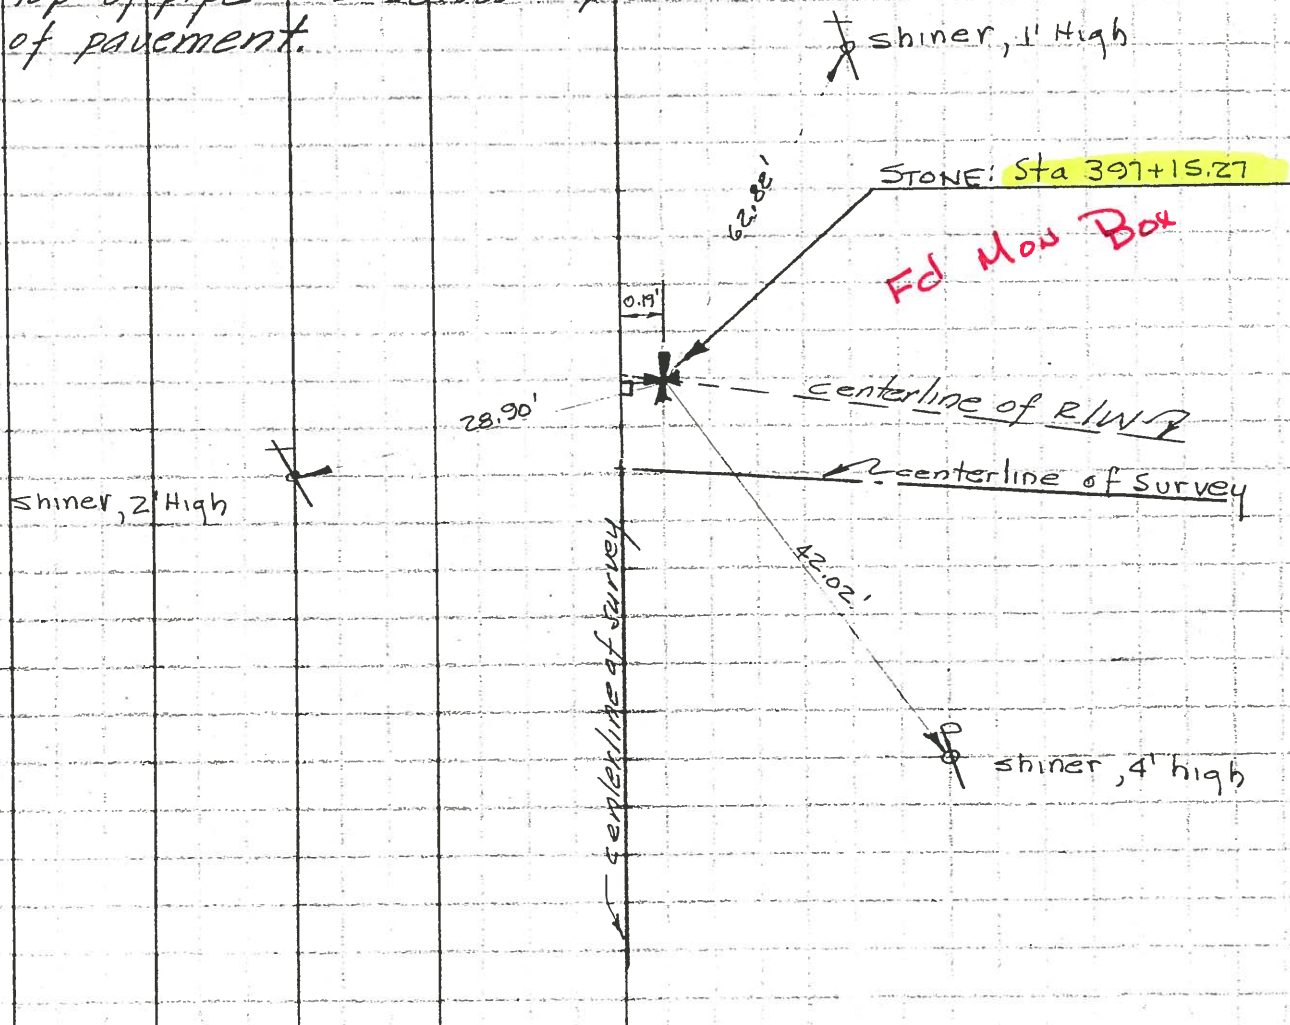 top of pipe
of pavement.
shiner, 1' High
62.82'
STONE: Sta 397+15.27
Fd Mon Box
0.19'
centerline of R/W
28.90'
centerline of survey
shiner, 2' High
42.02'
centerline of survey
shiner, 4' high